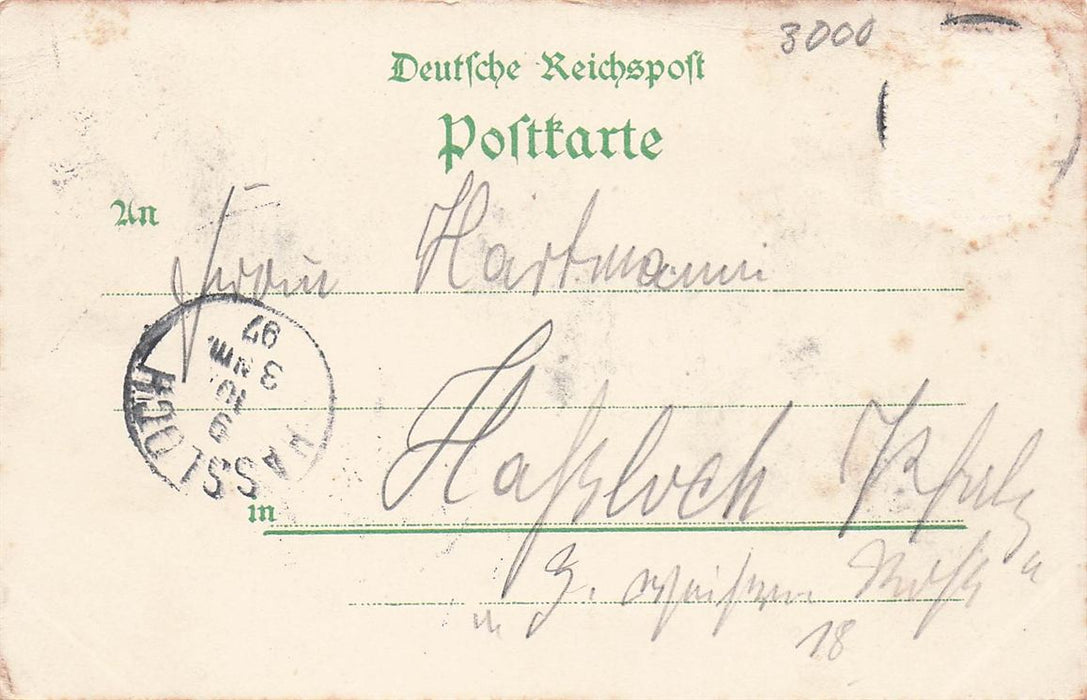 3000
Deutsche Reichspost
Postkarte
An
Frau Hartmann
HASSLOCH
9
10.
3 Nm.
97
in
Haßloch Pfalz
"z. weißen Roß"
18